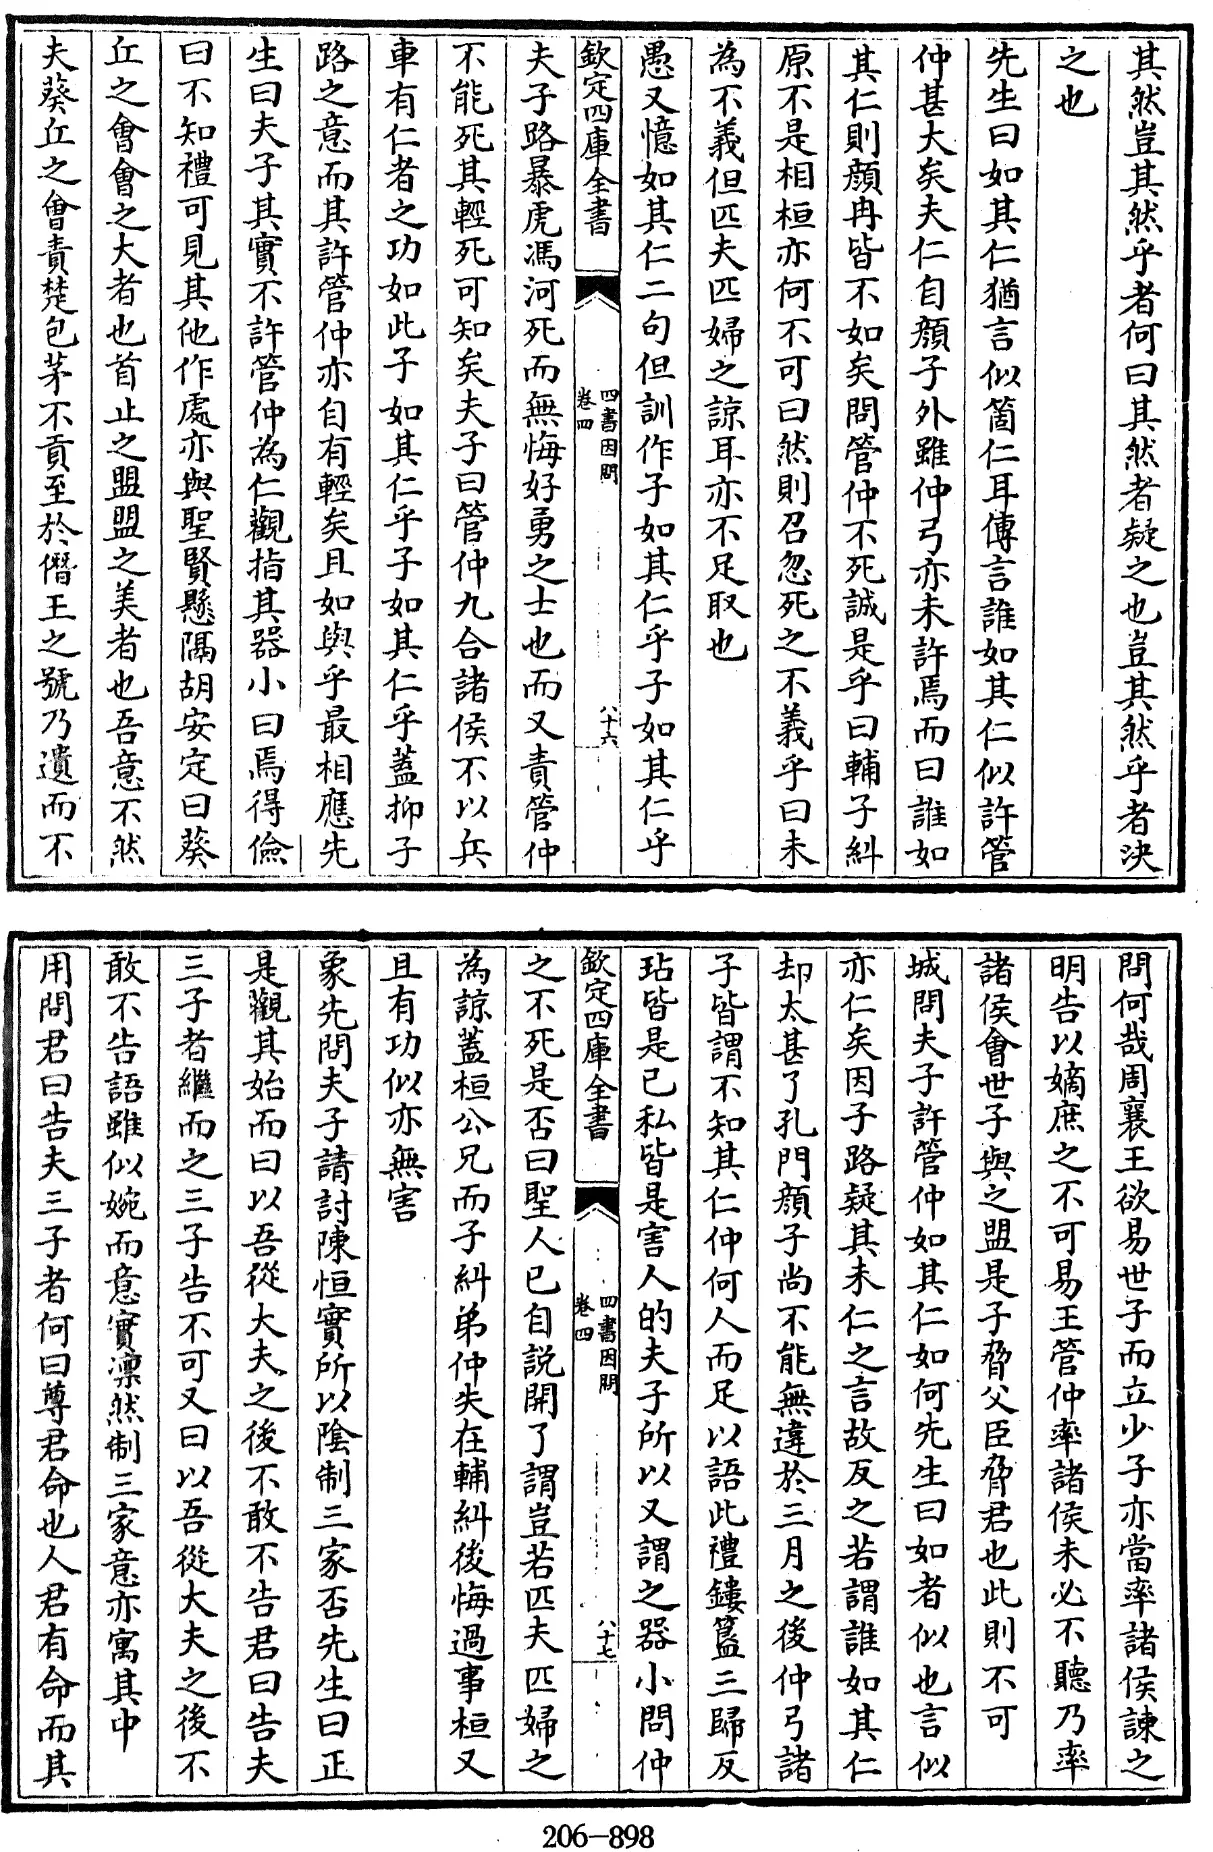 其然豈其然乎者何曰其然者疑之也豈其然乎者決
之也
先生曰如其仁猶言似箇仁耳傳言誰如其仁似許管
仲甚大矣夫仁自顔子外雖仲弓亦未許焉而曰誰如
其仁則顔冉皆不如矣問管仲不死誠是乎曰輔子糾
原不是相桓亦何不可曰然則召忽死之不義乎曰未
為不義但匹夫匹婦之諒耳亦不足取也
愚又憶如其仁二句但訓作子如其仁乎子如其仁乎
欽定四庫全書
四書因問
卷四
八十六
夫子路暴虎馮河死而無悔好勇之士也而又責管仲
不能死其輕死可知矣夫子曰管仲九合諸侯不以兵
車有仁者之功如此子如其仁乎子如其仁乎蓋抑子
路之意而其許管仲亦自有輕矣且如與乎最相應先
生曰夫子其實不許管仲為仁觀指其器小曰焉得儉
曰不知禮可見其他作處亦與聖賢懸隔胡安定曰葵
丘之會會之大者也首止之盟盟之美者也吾意不然
夫葵丘之會責楚包茅不貢至於僭王之號乃遺而不
問何哉周襄王欲易世子而立少子亦當率諸侯諫之
明告以嫡庶之不可易王管仲率諸侯未必不聽乃率
諸侯會世子與之盟是子脅父臣脅君也此則不可
城問夫子許管仲如其仁如何先生曰如者似也言似
亦仁矣因子路疑其未仁之言故反之若謂誰如其仁
却太甚了孔門顔子尚不能無違於三月之後仲弓諸
子皆謂不知其仁仲何人而足以語此禮鏤簋三歸反
玷皆是已私皆是害人的夫子所以又謂之器小問仲
欽定四庫全書
四書因問
卷四
八十七
之不死是否曰聖人已自説開了謂豈若匹夫匹婦之
為諒蓋桓公兄而子糾弟仲失在輔糾後悔過事桓又
且有功似亦無害
象先問夫子請討陳恒實所以陰制三家否先生曰正
是觀其始而曰以吾從大夫之後不敢不告君曰告夫
三子者繼而之三子告不可又曰以吾從大夫之後不
敢不告語雖似婉而意實凛然制三家意亦寓其中
用問君曰告夫三子者何曰尊君命也人君有命而其
206-898